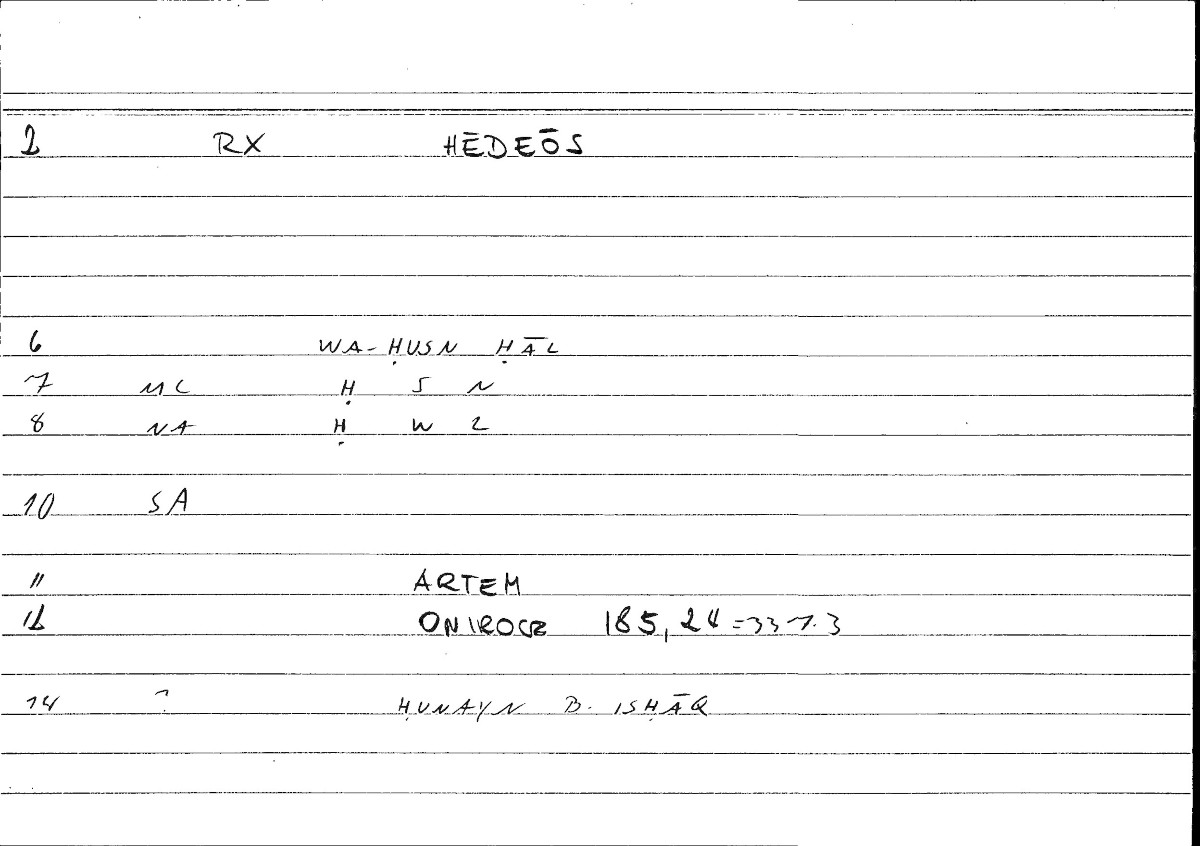 2 RX HĒDEŌS
6 WA-ḤUSN ḤĀL
7 ML Ḥ S N
8 NA Ḥ W L
10 SA
11 ARTEM
12 ONIROCR 185,24 = 331.3
14 ? ḤUNAYN B. ISḤĀQ